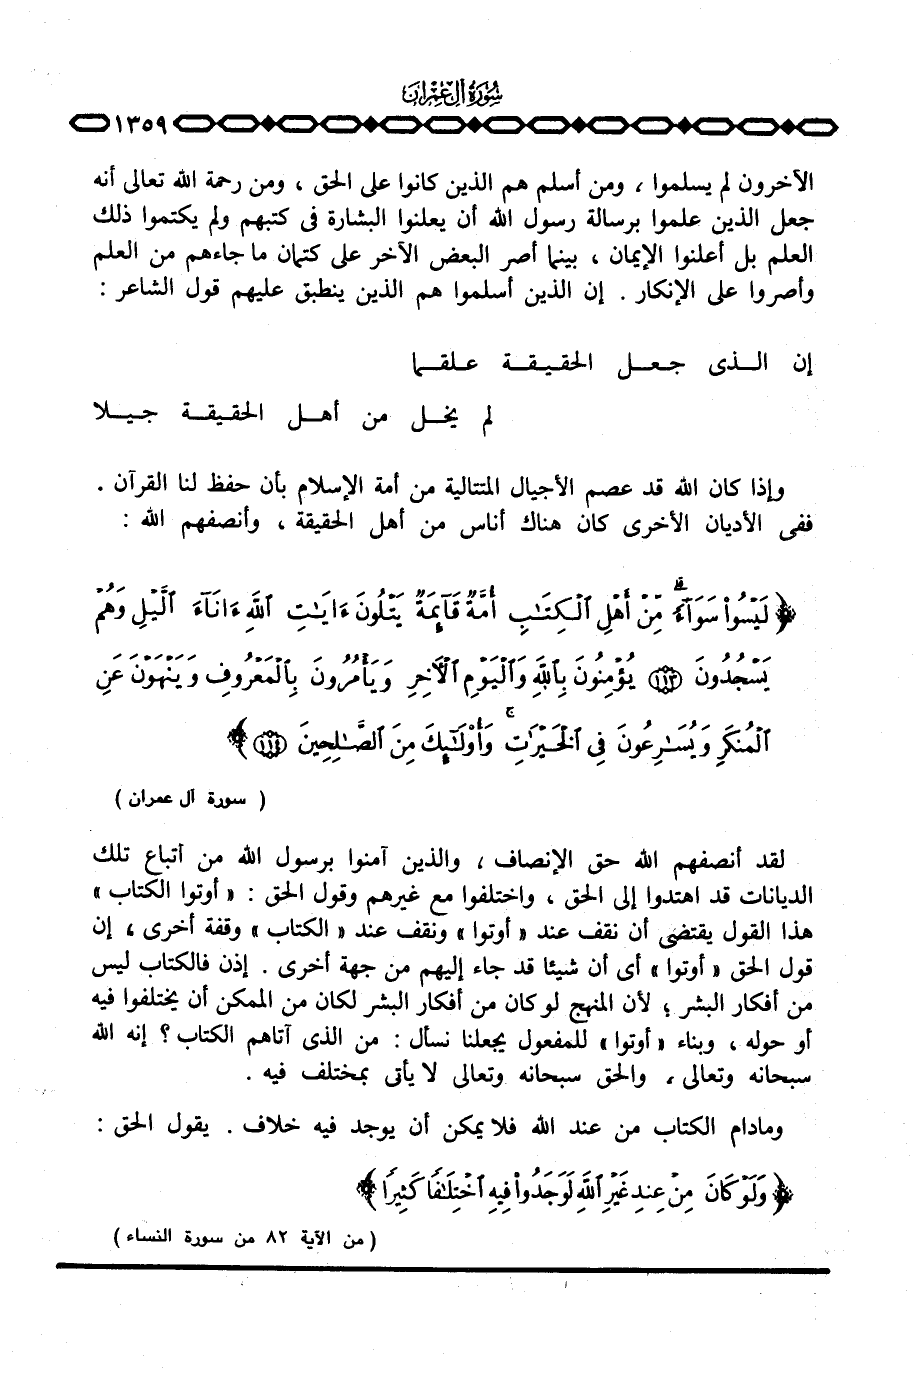 سُورَةُ آلِ عِمْرَان
١٣٥٩
الآخرون لم يسلموا ، ومن أسلم هم الذين كانوا على الحق ، ومن رحمة الله تعالى أنه
جعل الذين علموا برسالة رسول الله أن يعلنوا البشارة فى كتبهم ولم يكتموا ذلك
العلم بل أعلنوا الإيمان ، بينما أصر البعض الآخر على كتمان ما جاءهم من العلم
وأصروا على الإنكار . إن الذين أسلموا هم الذين ينطبق عليهم قول الشاعر :
إن الـذى جـعـل الحقـيـقـة عـلقـما
لم يخـل من أهـل الحقيقـة جـيـلا
وإذا كان الله قد عصم الأجيال المتتالية من أمة الإسلام بأن حفظ لنا القرآن .
ففى الأديان الأخرى كان هناك أناس من أهل الحقيقة ، وأنصفهم الله :
﴿ لَيْسُوا۟ سَوَآءًۗ مِّنْ أَهْلِ ٱلْكِتَـٰبِ أُمَّةٌ قَآئِمَةٌ يَتْلُونَ ءَايَـٰتِ ٱللَّهِ ءَانَآءَ ٱلَّيْلِ وَهُمْ
يَسْجُدُونَ ١١٣ يُؤْمِنُونَ بِٱللَّهِ وَٱلْيَوْمِ ٱلْـَٔاخِرِ وَيَأْمُرُونَ بِٱلْمَعْرُوفِ وَيَنْهَوْنَ عَنِ
ٱلْمُنكَرِ وَيُسَـٰرِعُونَ فِى ٱلْخَيْرَٰتِۖ وَأُو۟لَـٰٓئِكَ مِنَ ٱلصَّـٰلِحِينَ ١١٤ ﴾
( سورة آل عمران )
لقد أنصفهم الله حق الإنصاف ، والذين آمنوا برسول الله من أتباع تلك
الديانات قد اهتدوا إلى الحق ، واختلفوا مع غيرهم وقول الحق : « أوتوا الكتاب »
هذا القول يقتضى أن نقف عند « أوتوا » ونقف عند « الكتاب » وقفة أخرى ، إن
قول الحق « أوتوا » أى أن شيئا قد جاء إليهم من جهة أخرى . إذن فالكتاب ليس
من أفكار البشر ؛ لأن المنهج لو كان من أفكار البشر لكان من الممكن أن يختلفوا فيه
أو حوله ، وبناء « أوتوا » للمفعول يجعلنا نسأل : من الذى آتاهم الكتاب ؟ إنه الله
سبحانه وتعالى ، والحق سبحانه وتعالى لا يأتى بمختلف فيه .
ومادام الكتاب من عند الله فلا يمكن أن يوجد فيه خلاف . يقول الحق :
﴿ وَلَوْ كَانَ مِنْ عِندِ غَيْرِ ٱللَّهِ لَوَجَدُوا۟ فِيهِ ٱخْتِلَـٰفًا كَثِيرًا ﴾
( من الآية ٨٢ من سورة النساء )